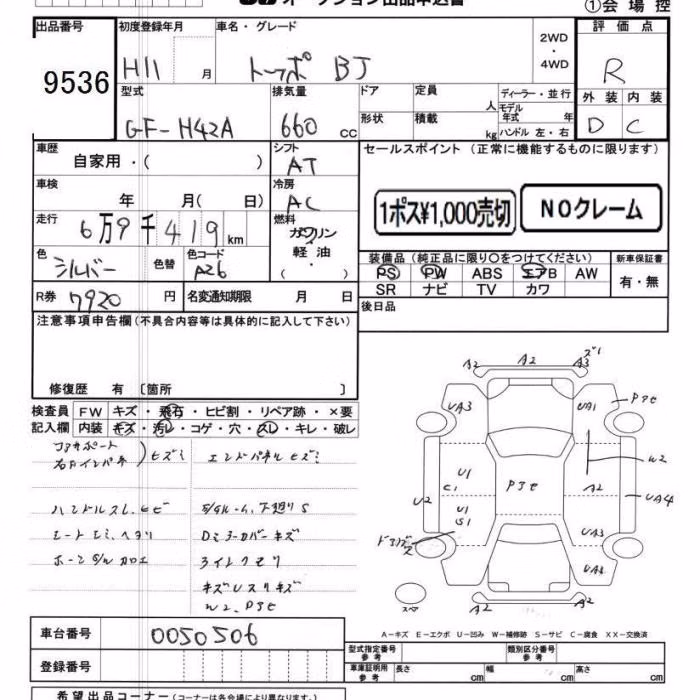 オークション出品申込書 ①会場控
出品番号 初度登録年月 車名・グレード 評価点
9536 H11 月 トッポ BJ 2WD・4WD R
型式 排気量 ドア 定員 人 ディーラー・並行 外装 内装
GF-H42A 660 cc 形状 積載 kg モデル年式 年 ハンドル 左・右 D C
車歴 自家用・( ) シフト AT セールスポイント (正常に機能するものに限ります)
車検 年 月( 日) 冷房 AC 1ポス¥1,000売切 NOクレーム
走行 6万9千419km 燃料 ガソリン 軽油・( )
色 シルバー 色替 色コード A26 装備品(純正品に限り○をつけてください) 新車保証書
PS PW ABS エアB AW 有・無
R券 7920 円 名変通知期限 月 日 SR ナビ TV カワ
注意事項申告欄(不具合内容等は具体的に記入して下さい) 後日品
修復歴 有 〔箇所 〕
検査員 FW キズ・飛石・ヒビ割・リペア跡・×要
記入欄 内装 キズ・汚レ・コゲ・穴・スレ・キレ・破レ
コアサポート
右Fインパネ )ヒズミ エンドパネルヒズミ
ハンドルスレ、ヒビ 下廻りS
キズ
A2 A2 A3 ズレ
UA3 UA1 P3セ
W2
U2 U1 C1 P3セ A2 UA4
U1 S1
UA3
UA4
A2 A2
スペア
W2、P3セ
車台番号 0050506 A-キズ E-エクボ U-凹み W-補修跡 S-サビ C-腐食 XX-交換済
登録番号 型式指定番号 参考 類別区分番号 参考
車庫証明用 参考 長さ cm 幅 cm 高さ cm
希望出品コーナー (コーナーは各会場により異なります。)